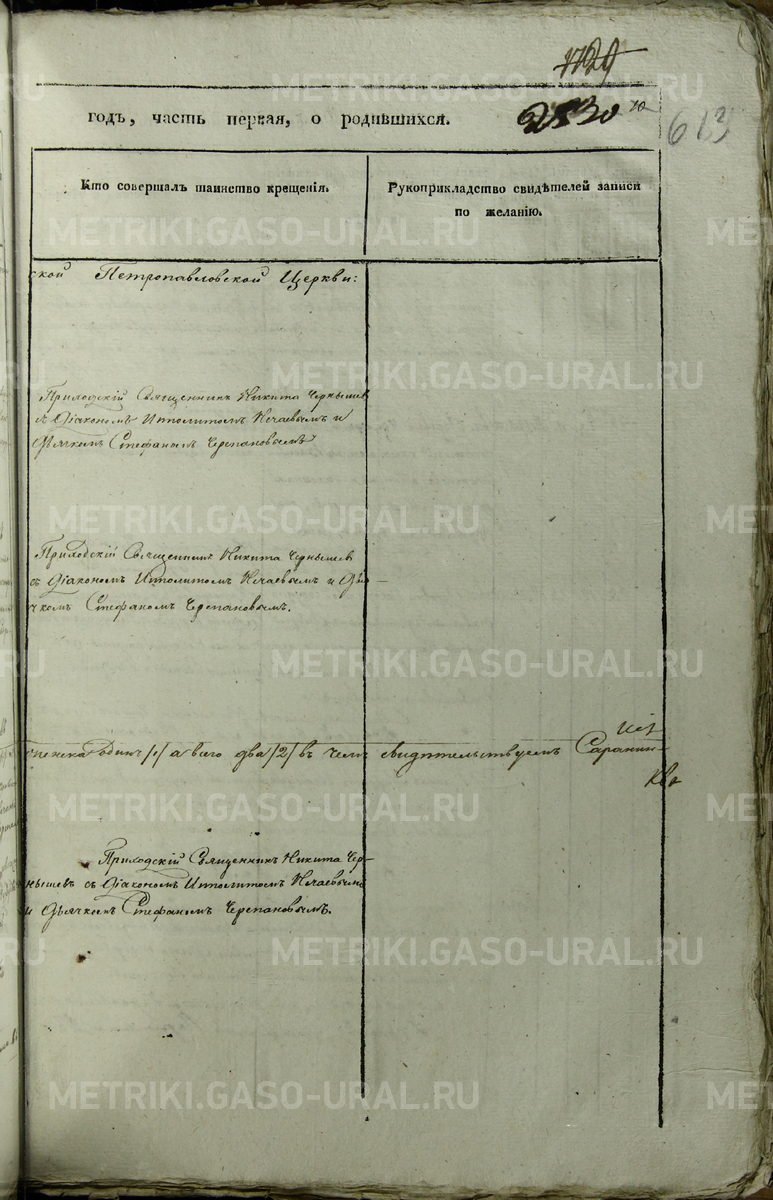 1729
годъ, часть первая, о родившихся.
2830
613
Кто совершалъ таинство крещенія.
Рукоприкладство свидѣтелей записи по желанію.
ской Петропавловской Церкви:
Приходскій Священникъ Никита Чернышев
съ Діакономъ Ипполитомъ Нечаевымъ и
Дьячкомъ Стефаномъ Черепановымъ
Приходскій Священникъ Никита Чернышев
съ Діакономъ Ипполитомъ Нечаевымъ и Дья-
чкомъ Стефаномъ Черепановымъ.
женска одинъ /1/ а всего два /2/ въ чемъ свидѣтельствуемъ Саранин-
Приходскій Священникъ Никита Чер-
нышевъ съ Діакономъ Ипполитомъ Нечаевымъ
и Дьячкомъ Стефаномъ Черепановымъ.
METRIKI.GASO-URAL.RU